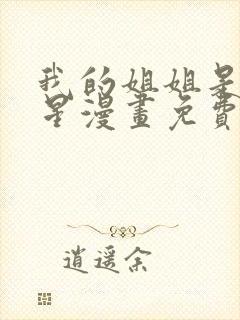 我的姐姐是
星漫畫免費
逍遥余